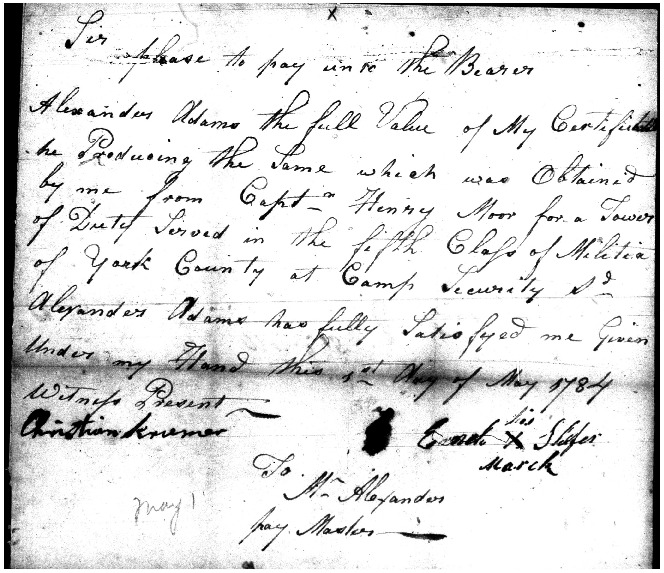 Sir
please to pay unto the Bearer
Alexander Adams the full Value of My Certificate
he Producing the Same which was Obtained
by me from Captn Henry Moor for a Tower
of Duty Served in the fifth Class of Militia
of York County at Camp Security sd
Alexander Adams has fully Satisfyed me Given
Under my Hand this 1st day of May 1784
Witness Present
Christian Kremer
his
X Slifer
March
To
Mr Alexander
pay Master
May 1